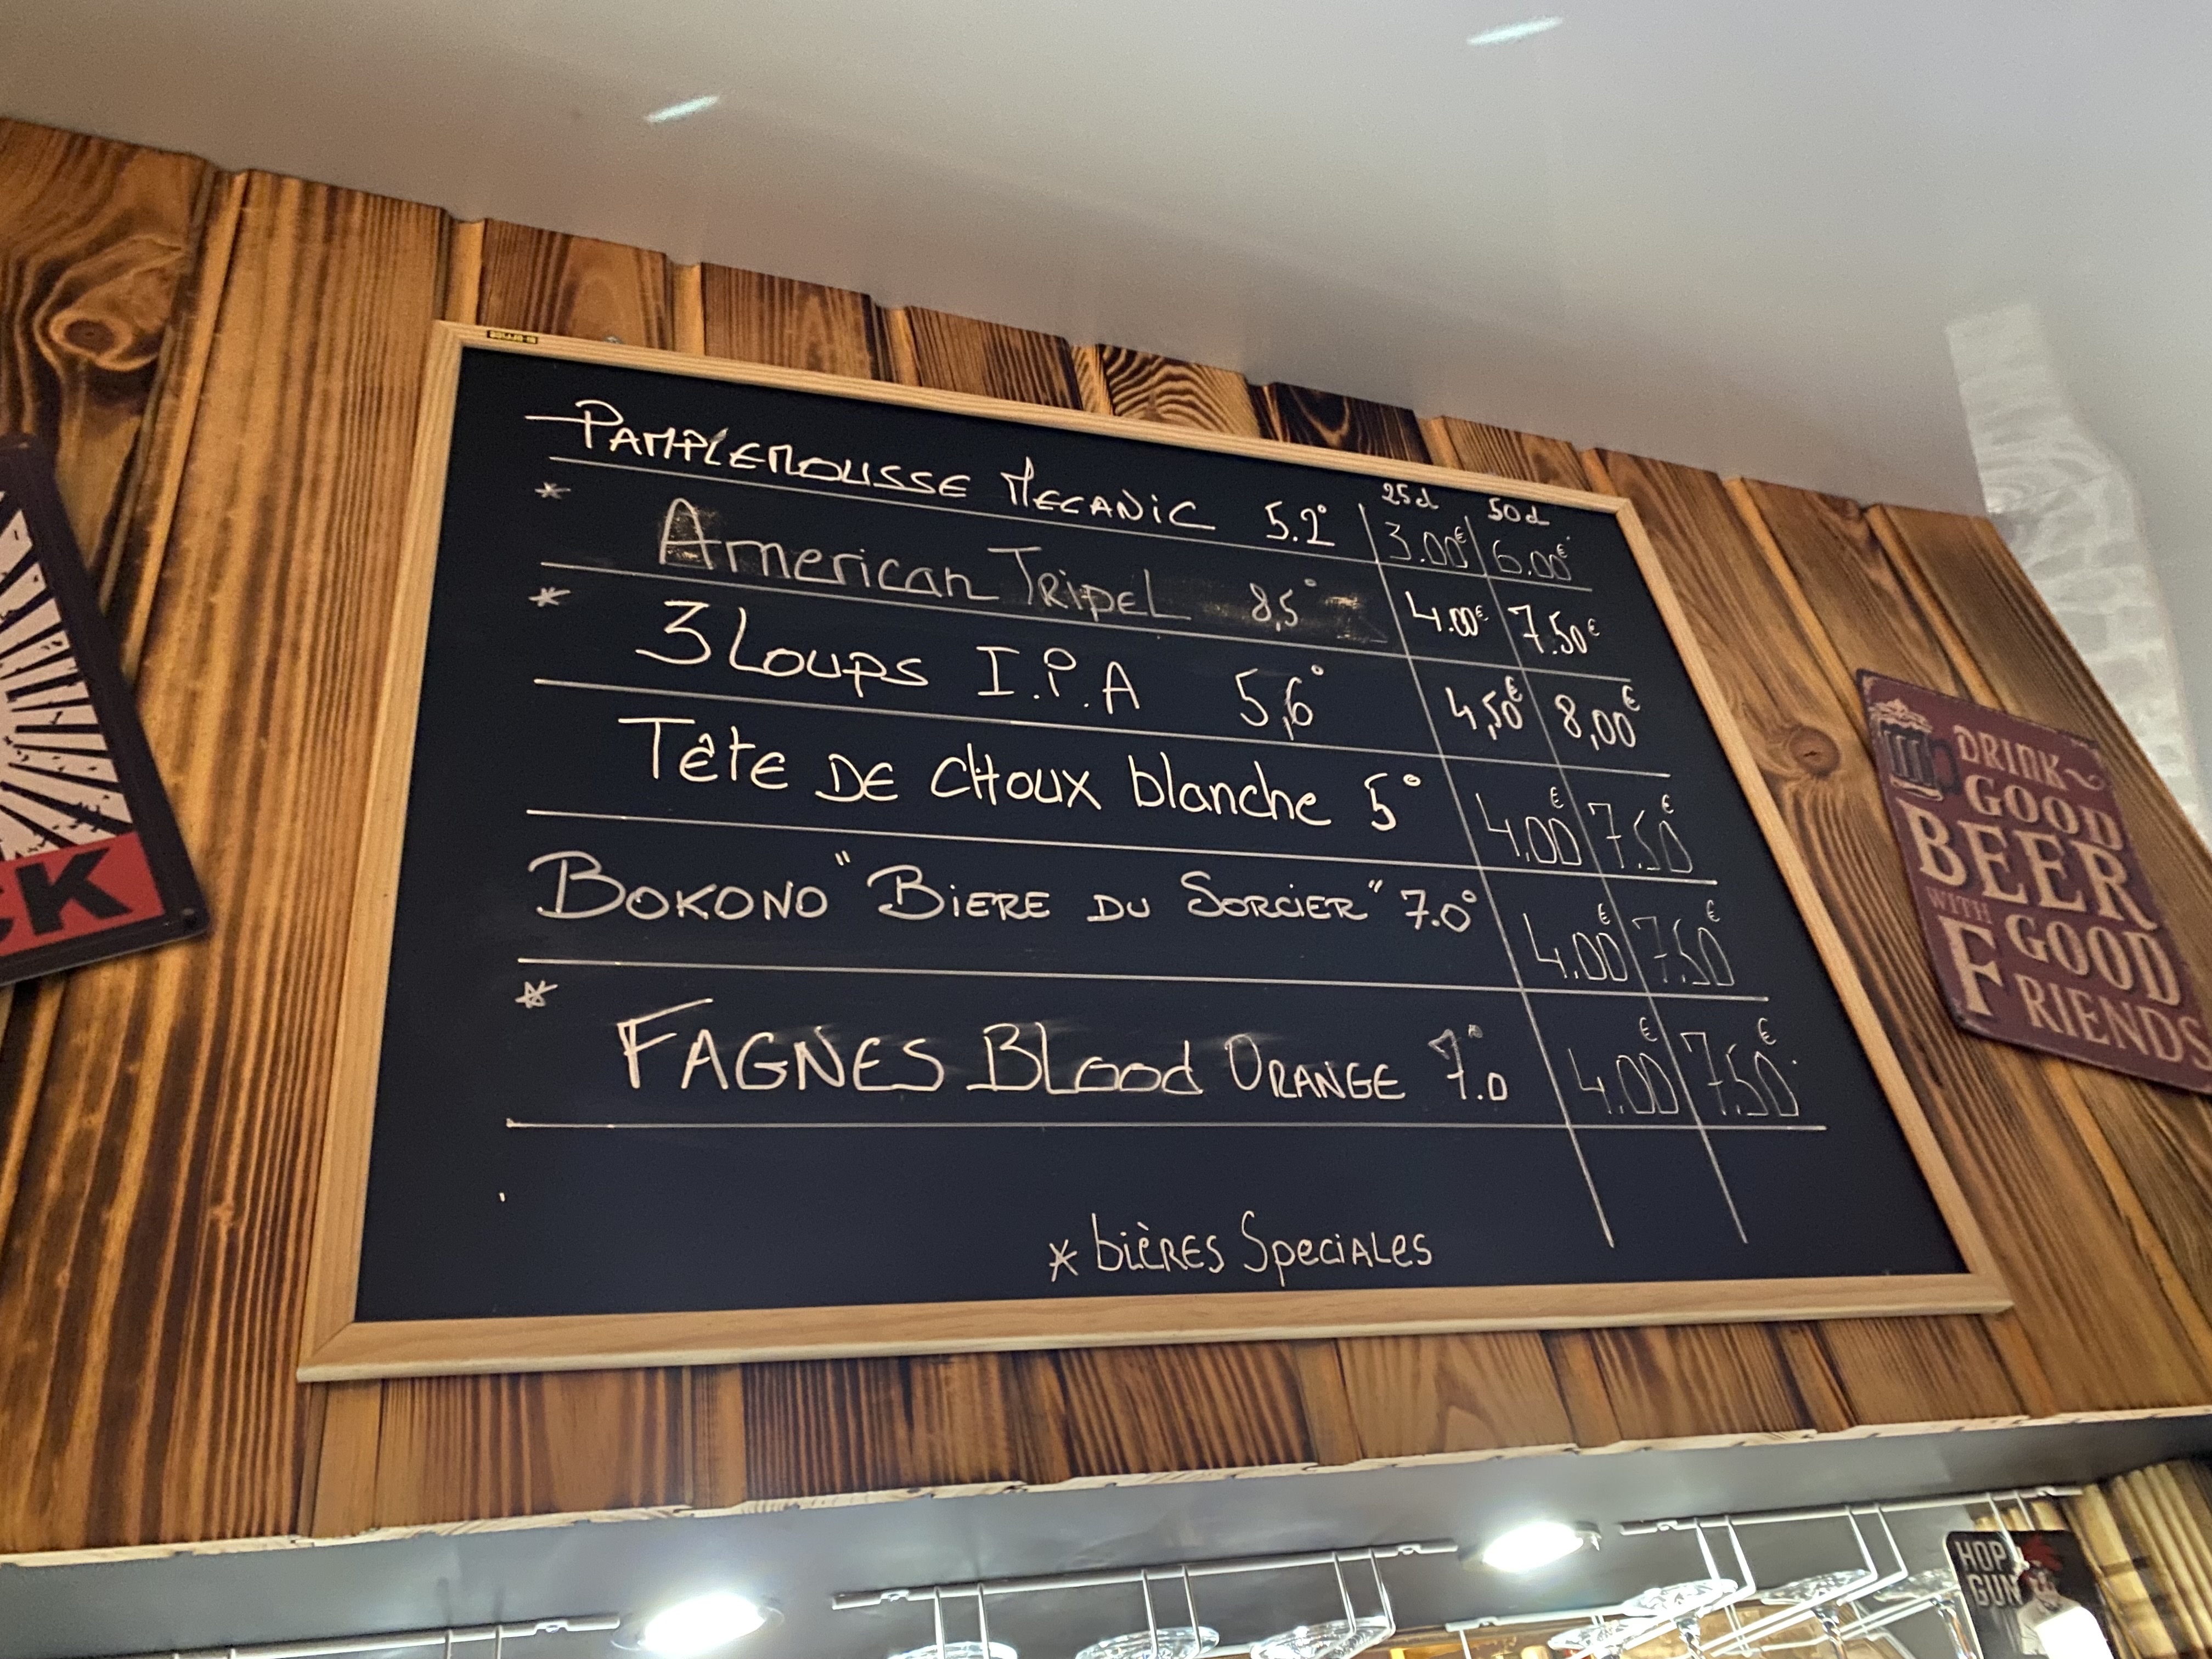 PAMPLEMOUSSE MECANIC 5.2° 25cl 50cl 3.00€ 6.00€
* American TRIPEL 8,5° 4.00€ 7.50€
* 3 Loups I.P.A 5,6° 4,50€ 8,00€
Tête DE CHoux blanche 5° 4.00€ 7.50€
BOKONO "BIERE DU SORCIER" 7.0° 4.00€ 7.50€
* FAGNES BLood ORANGE 7.0° 4.00€ 7.50€
* bièRES SpeciALes
CK
DRINK
GOOD
BEER
WITH GOOD
FRIENDS
HOP
GUN